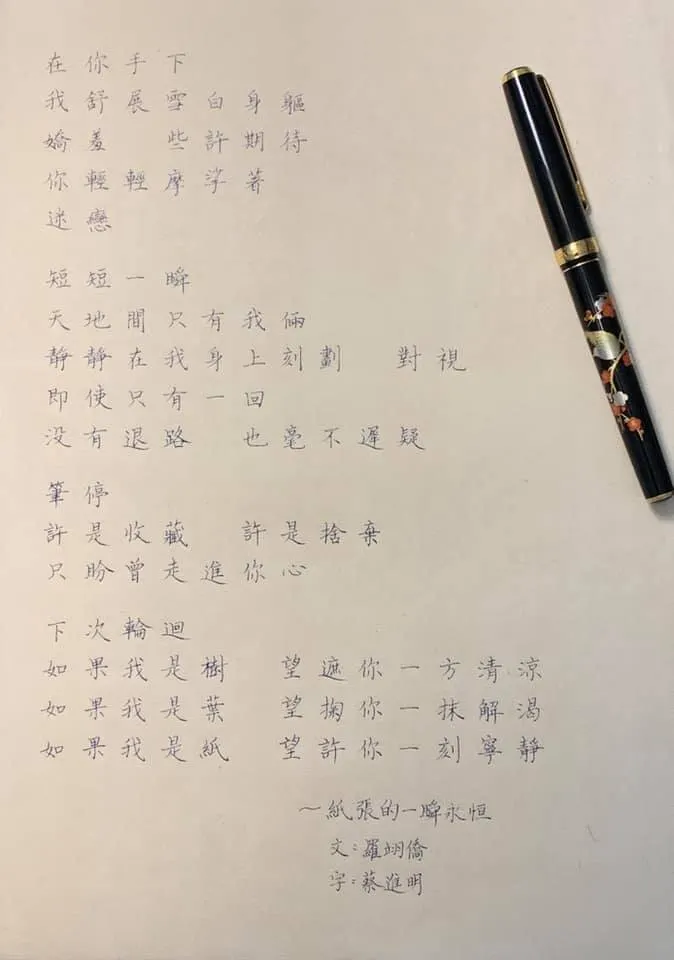 在你手下
我舒展雪白身軀
嬌羞　些許期待
你輕輕摩挲著
迷戀
短短一瞬
天地間只有我倆
靜靜在我身上刻劃　對視
即使只有一回
沒有退路　也毫不遲疑
筆停
許是收藏　許是捨棄
只盼曾走進你心
下次輪迴
如果我是樹　望遮你一方清涼
如果我是葉　望掬你一抹解渴
如果我是紙　望許你一刻寧靜
～紙張的一瞬永恒
文：羅翊僑
字：蔡進明